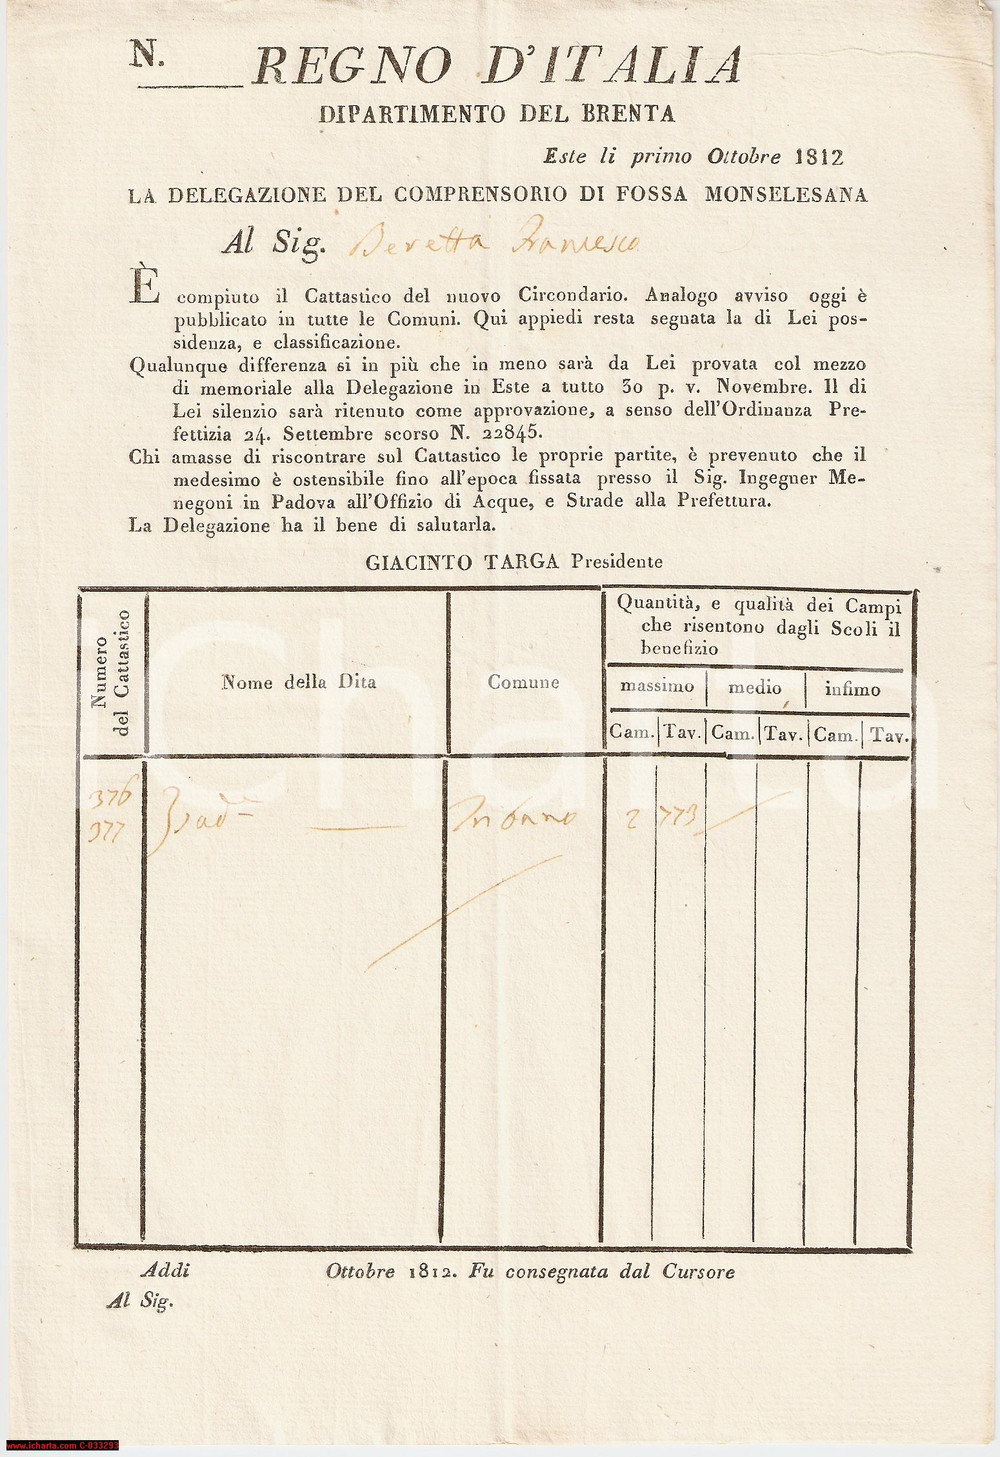 N. REGNO D'ITALIA
DIPARTIMENTO DEL BRENTA
Este li primo Ottobre 1812
LA DELEGAZIONE DEL COMPRENSORIO DI FOSSA MONSELESANA
Al Sig. Beretta Francesco
È compiuto il Cattastico del nuovo Circondario. Analogo avviso oggi è
pubblicato in tutte le Comuni. Qui appiedi resta segnata la di Lei pos-
sidenza, e classificazione.
Qualunque differenza si in più che in meno sarà da Lei provata col mezzo
di memoriale alla Delegazione in Este a tutto 30 p. v. Novembre. Il di
Lei silenzio sarà ritenuto come approvazione, a senso dell'Ordinanza Pre-
fettizia 24. Settembre scorso N. 22845.
Chi amasse di riscontrare sul Cattastico le proprie partite, è prevenuto che il
medesimo è ostensibile fino all'epoca fissata presso il Sig. Ingegner Me-
negoni in Padova all'Offizio di Acque, e Strade alla Prefettura.
La Delegazione ha il bene di salutarla.
GIACINTO TARGA Presidente
Numero
del Cattastico
Nome della Dita
Comune
Quantità, e qualità dei Campi
che risentono dagli Scoli il
benefizio
massimo medio infimo
Cam. Tav. Cam. Tav. Cam. Tav.
376
377
Tribano 2 773
Addi Ottobre 1812. Fu consegnata dal Cursore
Al Sig.
iCharta
www.icharta.com C-033293